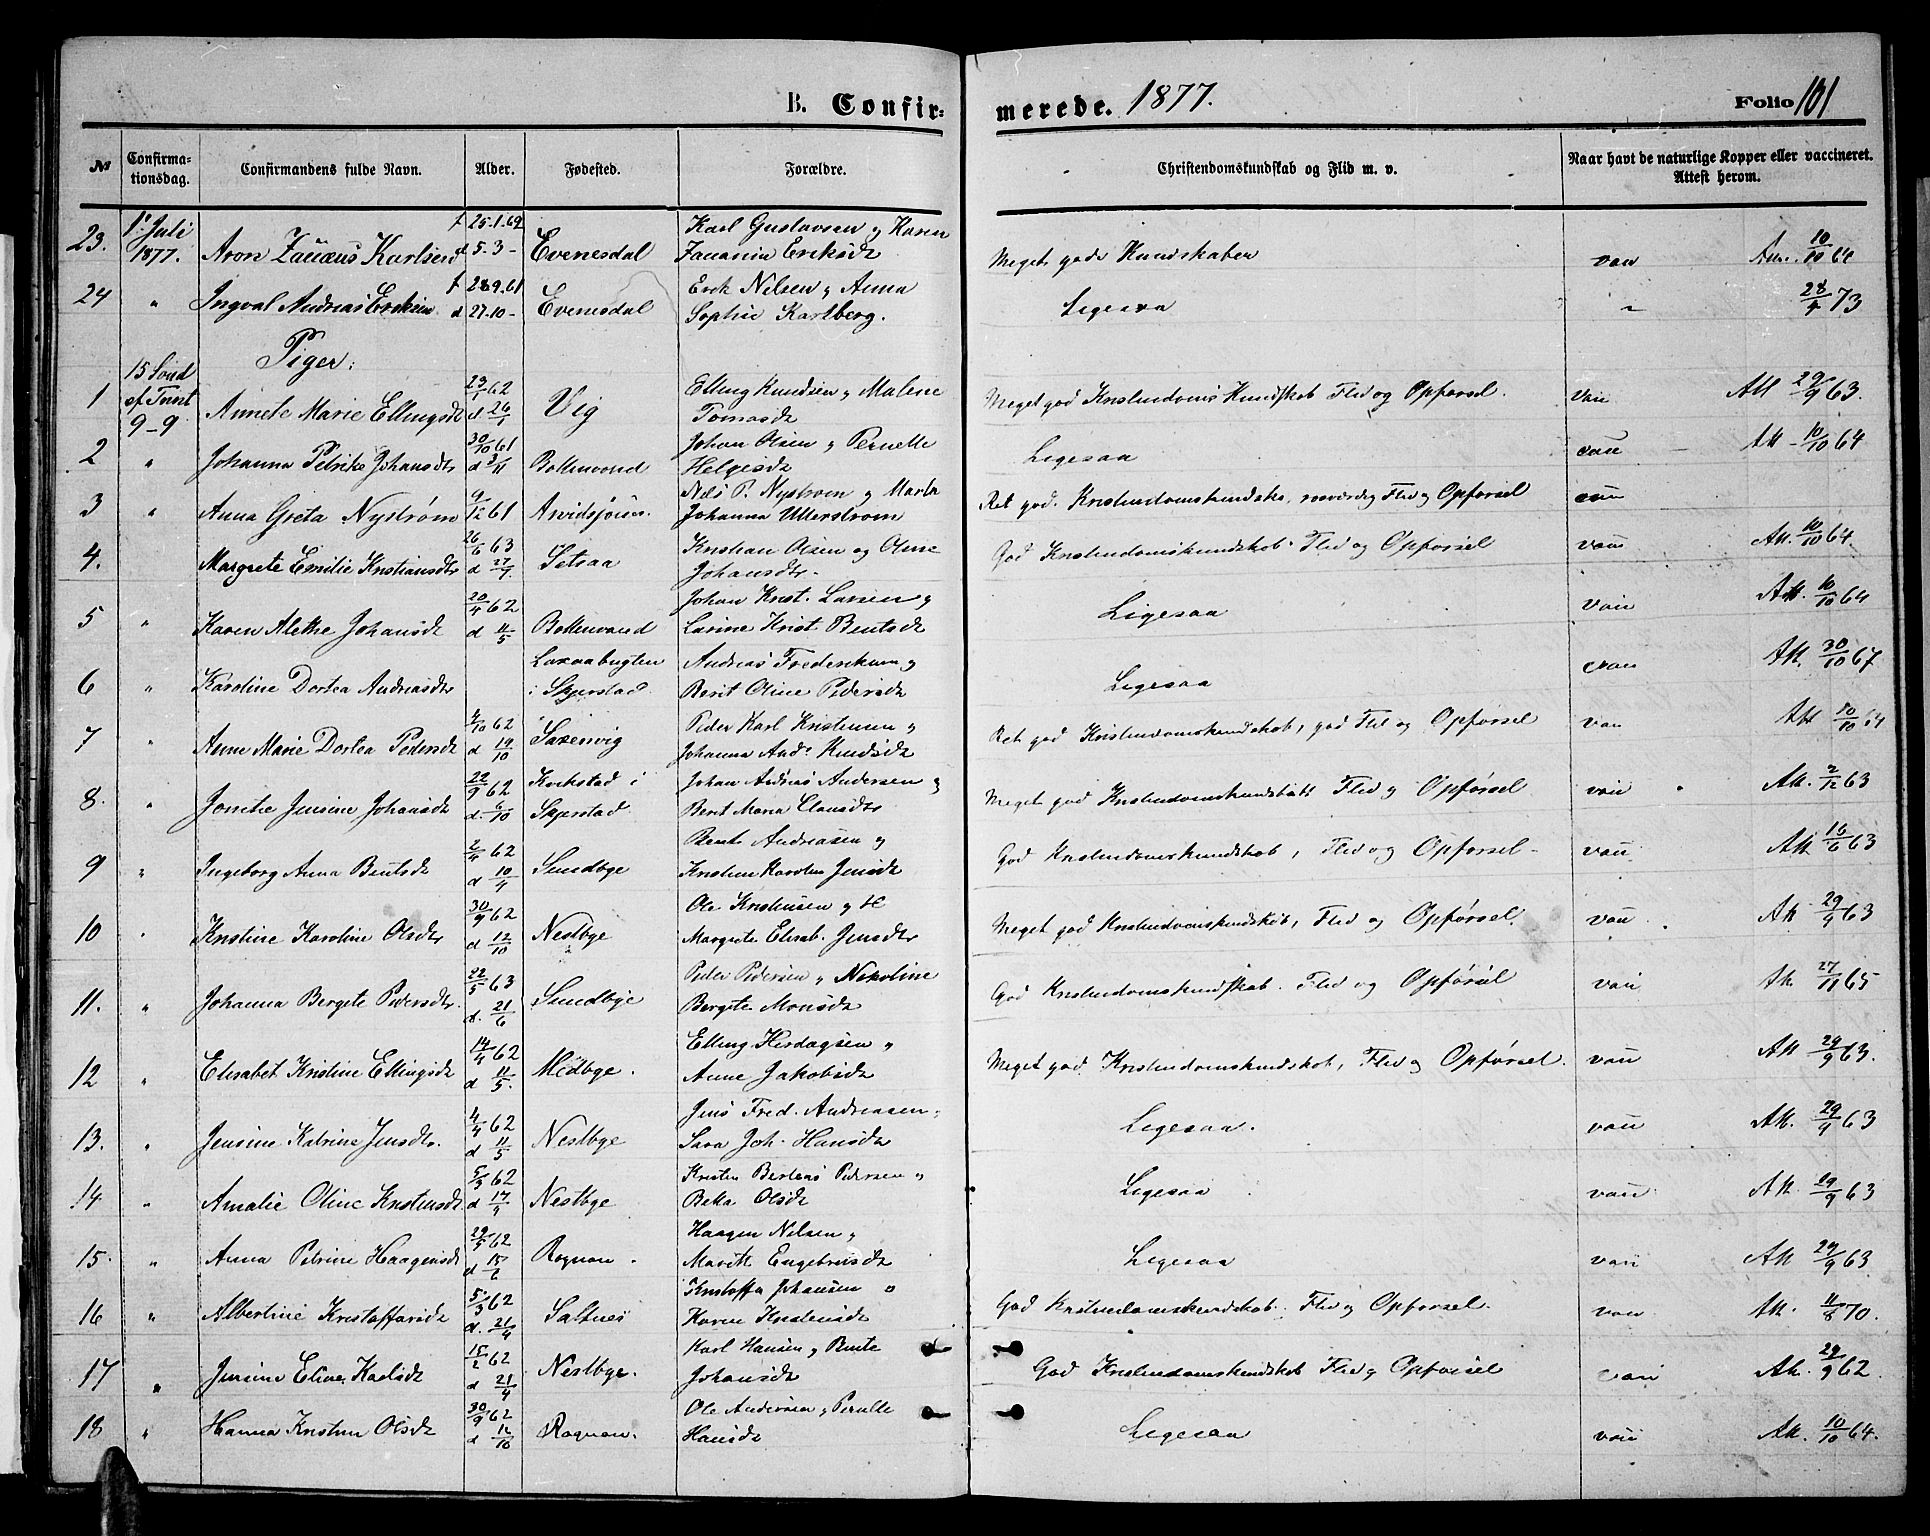 B. Confir=
merede. 1877. Folio 101
No Confirmationsdag. Confirmandens fulde Navn. Alder. Fødested. Forældre. Christendomskundskab og Flid m. v. Naar havt de naturlige Kopper eller vaccineret. Attest herom.
23. 1' Juli 1877. Aron Karlsen f 25.1.62 d 5.3- Evenesdal Karl Gustavsen og Karen Eriksdr Meget gode Kundskaber vac 10/10 64
24 " Ingval Andreas Eriksen f 28.9.61 d 27.10- Evenesdal Erik Nelsen " Anna Sophie Karlberg. Ligesaa " 28/4 73
Piger:
1 15 Sønd ef Trint 9-9. Annete Marie Ellingsdr 23/1 62 d 26/1 Vig Elling Knudsen " Malene Tomasdr Meget god Kristendoms Kundskab Flid og Opførsel. vac Att 29/9 63.
2 " Johanna Petrike Johansdr 30/10 61 d 3/11 Botnvand Johan Olsen " Pernelle Helgesdr Ligesaa vac Att 10/10 64
3 " Anna Greta Nystrøm 9/12 61 Arvidsjour. Nels P. Nystrøm og Marta Johanna Utterstrøm Ret god. Kristendomskundska, Flid og Opførsel
4. " Margrete Emilie Kristiansdr 26/6 63 d 27/7. Setsaa Kristian Olsen og Oline Johansdr. God Kristendomskundskab. Flid og Opførsel vac Att. 10/10 64.
5 " Karen Alethe Johansdr 20/4 62 d 11/5 Botnvand Johan Krist. Larsen " Larine Krist. Bentsdr Ligesaa vac Att. 10/10 64
6 " Karoline Dortea Andreasdr Laxaabugten i Skjerstad. Andreas Frederiksen " Berit Oline Pedersdr Ligesaa vac Att. 30/10 67
7 " Anne Marie Dortea Pedersdr 4/10 62 d 19/10 Saxenvig Peder Karl Kristensen " Johanna And. Knudsdr Ret god Kristendomskundskab, god Flid og Opførsel vac Att 10/10 64
8. " Jonette Jensine Johansdr 22/9 62 d. 6/10 Kvikstad i Skjerstad. Johan Andreas Andersen " Berit Maria Clausdr Meget god Flid og Opførsel vac Att. 2/12 63
9 " Ingeborg Anna Bentsdr 2/4 62 d 10/4 Sundbye Bent Andreasen " Kristine Karoline Jensdr God Kristendomskundskab, Flid og Opførsel- vac Att 16/6 63
10 " Kristine Karoline Olsdr 30/9 62 d 12/10 Nestbye Ole Kristensen " Margrete Elisab. Jensdr Meget god Kristendomskundskab, Flid og Opførsel vac Att 29/9 63
11. " Johanna Bergete Pedersdr. 22/5 63 d. 21/6 Sundbye Peder Pedersen " Nekoline Bergete Monsdr God Kristendomskundskab. Flid og Opførsel vac Att. 27/11 65
12 " Elisabet Kristine Ellingsdr 14/4 62 d 11/5. Medbye. Elling Herdagsen " Anne Jakobsdr Meget god Kristendomskundskab, Flid og Opførsel. vac Att 29/9 63.
13. " Jensine Katrine Jensdr. 4/4 62 d 11/5 Nestbye Jens Fred. Andreasen " Sara Joh. Hansdr Ligesaa. vac Att. 29/9 63
14 " Amalie Oline Kristensdr 5/3 62 d 14/4 Nestbye Kristen Berteas Pedersen " Beka Olsdr Ligesaa vac Att. 29/9 63
15. " Anna Petrine Haagensdr 29/5 62 d 15/6 Rognan. Haagen Nelsen " Marith Engebretsdr Ligesaa vac Att 29/9 63
16 " Albertine Kristoffersdr 5/3 62 d. 21/4 Saltnes Kristoffer Johansen " Karen Kristensdr God Kristendomskundskab. Flid og Opførsel. vac Att. 11/8 70.
17 " Jensine Eline Karlsdr 15/2 62 d 21/4 Nestbye. Karl Hansen og Bente Johansdr God Kristendomskundskab Flid og Opførsel vac Att. 29/9 62.
18 " Hanna Kristine Olsdr 30/9 62 d 12/10 Rognan. Ole Andersen " Pernelle Hansdr Ligesaa vac Att. 10/10 64.